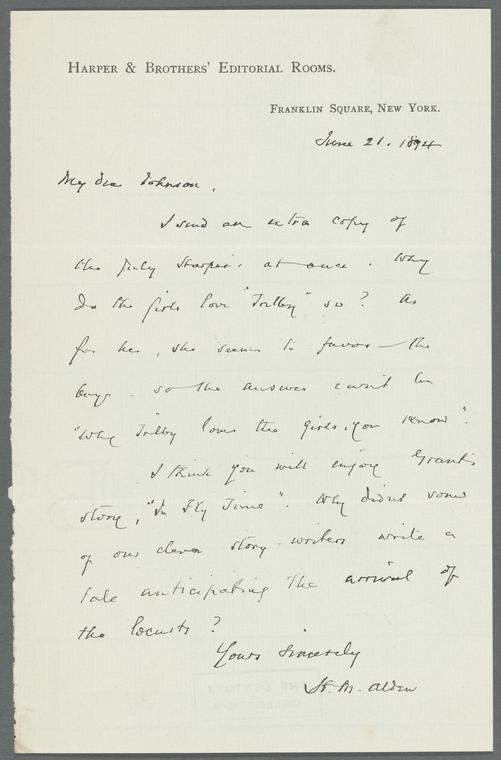 HARPER & BROTHERS' EDITORIAL ROOMS.
FRANKLIN SQUARE, NEW YORK.
June 21. 1894
My dear Johnson,
I send an extra copy of
the July Harper's at once. Why
do the girls love "Trilby" so? As
for her, she seems to favor the
boys - so the answer can't be
"Why Trilby loves the girls, you know".
I think you will enjoy Grant's
story, "In Fly Time". Why didn't some
of our clever story-writers write a
tale anticipating the arrival of
the locusts?
Yours sincerely
H. M. Alden